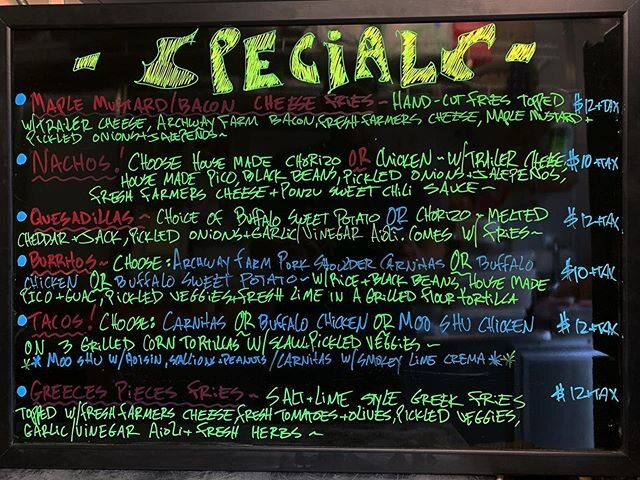 - SPECIALS -
• MAPLE MUSTARD/BACON CHEESE FRIES ~ HAND-CUT FRIES TOPPED $12+TAX
W/TRAILER CHEESE, ARCHWAY FARM BACON, FRESH FARMERS CHEESE, MAPLE MUSTARD +
PICKLED ONIONS+JALEPENOS~
• NACHOS! CHOOSE HOUSE MADE CHORIZO OR CHICKEN ~ W/TRAILER CHEESE, $10+TAX
HOUSE MADE PICO, BLACK BEANS, PICKLED ONIONS+JALEPENOS,
FRESH FARMERS CHEESE + PONZU SWEET CHILI SAUCE~
• QUESADILLAS ~ CHOICE OF BUFFALO SWEET POTATO OR CHORIZO ~ MELTED $12+TAX
CHEDDAR+JACK, PICKLED ONIONS+GARLIC/VINEGAR AIOLI. COMES W/FRIES~
• BURRITOS~ CHOOSE: ARCHWAY FARM PORK SHOULDER CARNITAS OR BUFFALO
CHICKEN OR BUFFALO SWEET POTATO~ W/RICE+BLACK BEANS, HOUSE MADE $10+TAX
PICO+GUAC, PICKLED VEGGIES+FRESH LIME IN A GRILLED FLOUR TORTILLA
• TACOS! CHOOSE: CARNITAS OR BUFFALO CHICKEN OR MOO SHU CHICKEN $12+TAX
ON 3 GRILLED CORN TORTILLAS W/SLAW, PICKLED VEGGIES~
** MOO SHU W/HOISIN, SCALLIONS+PEANUTS/CARNITAS W/SMOKEY LIME CREMA **
• GREECES PIECES FRIES~ SALT+LIME STYLE GREEK FRIES $12+TAX
TOPPED W/FRESH FARMERS CHEESE, FRESH TOMATOES+OLIVES, PICKLED VEGGIES,
GARLIC/VINEGAR AIOLI+FRESH HERBS~